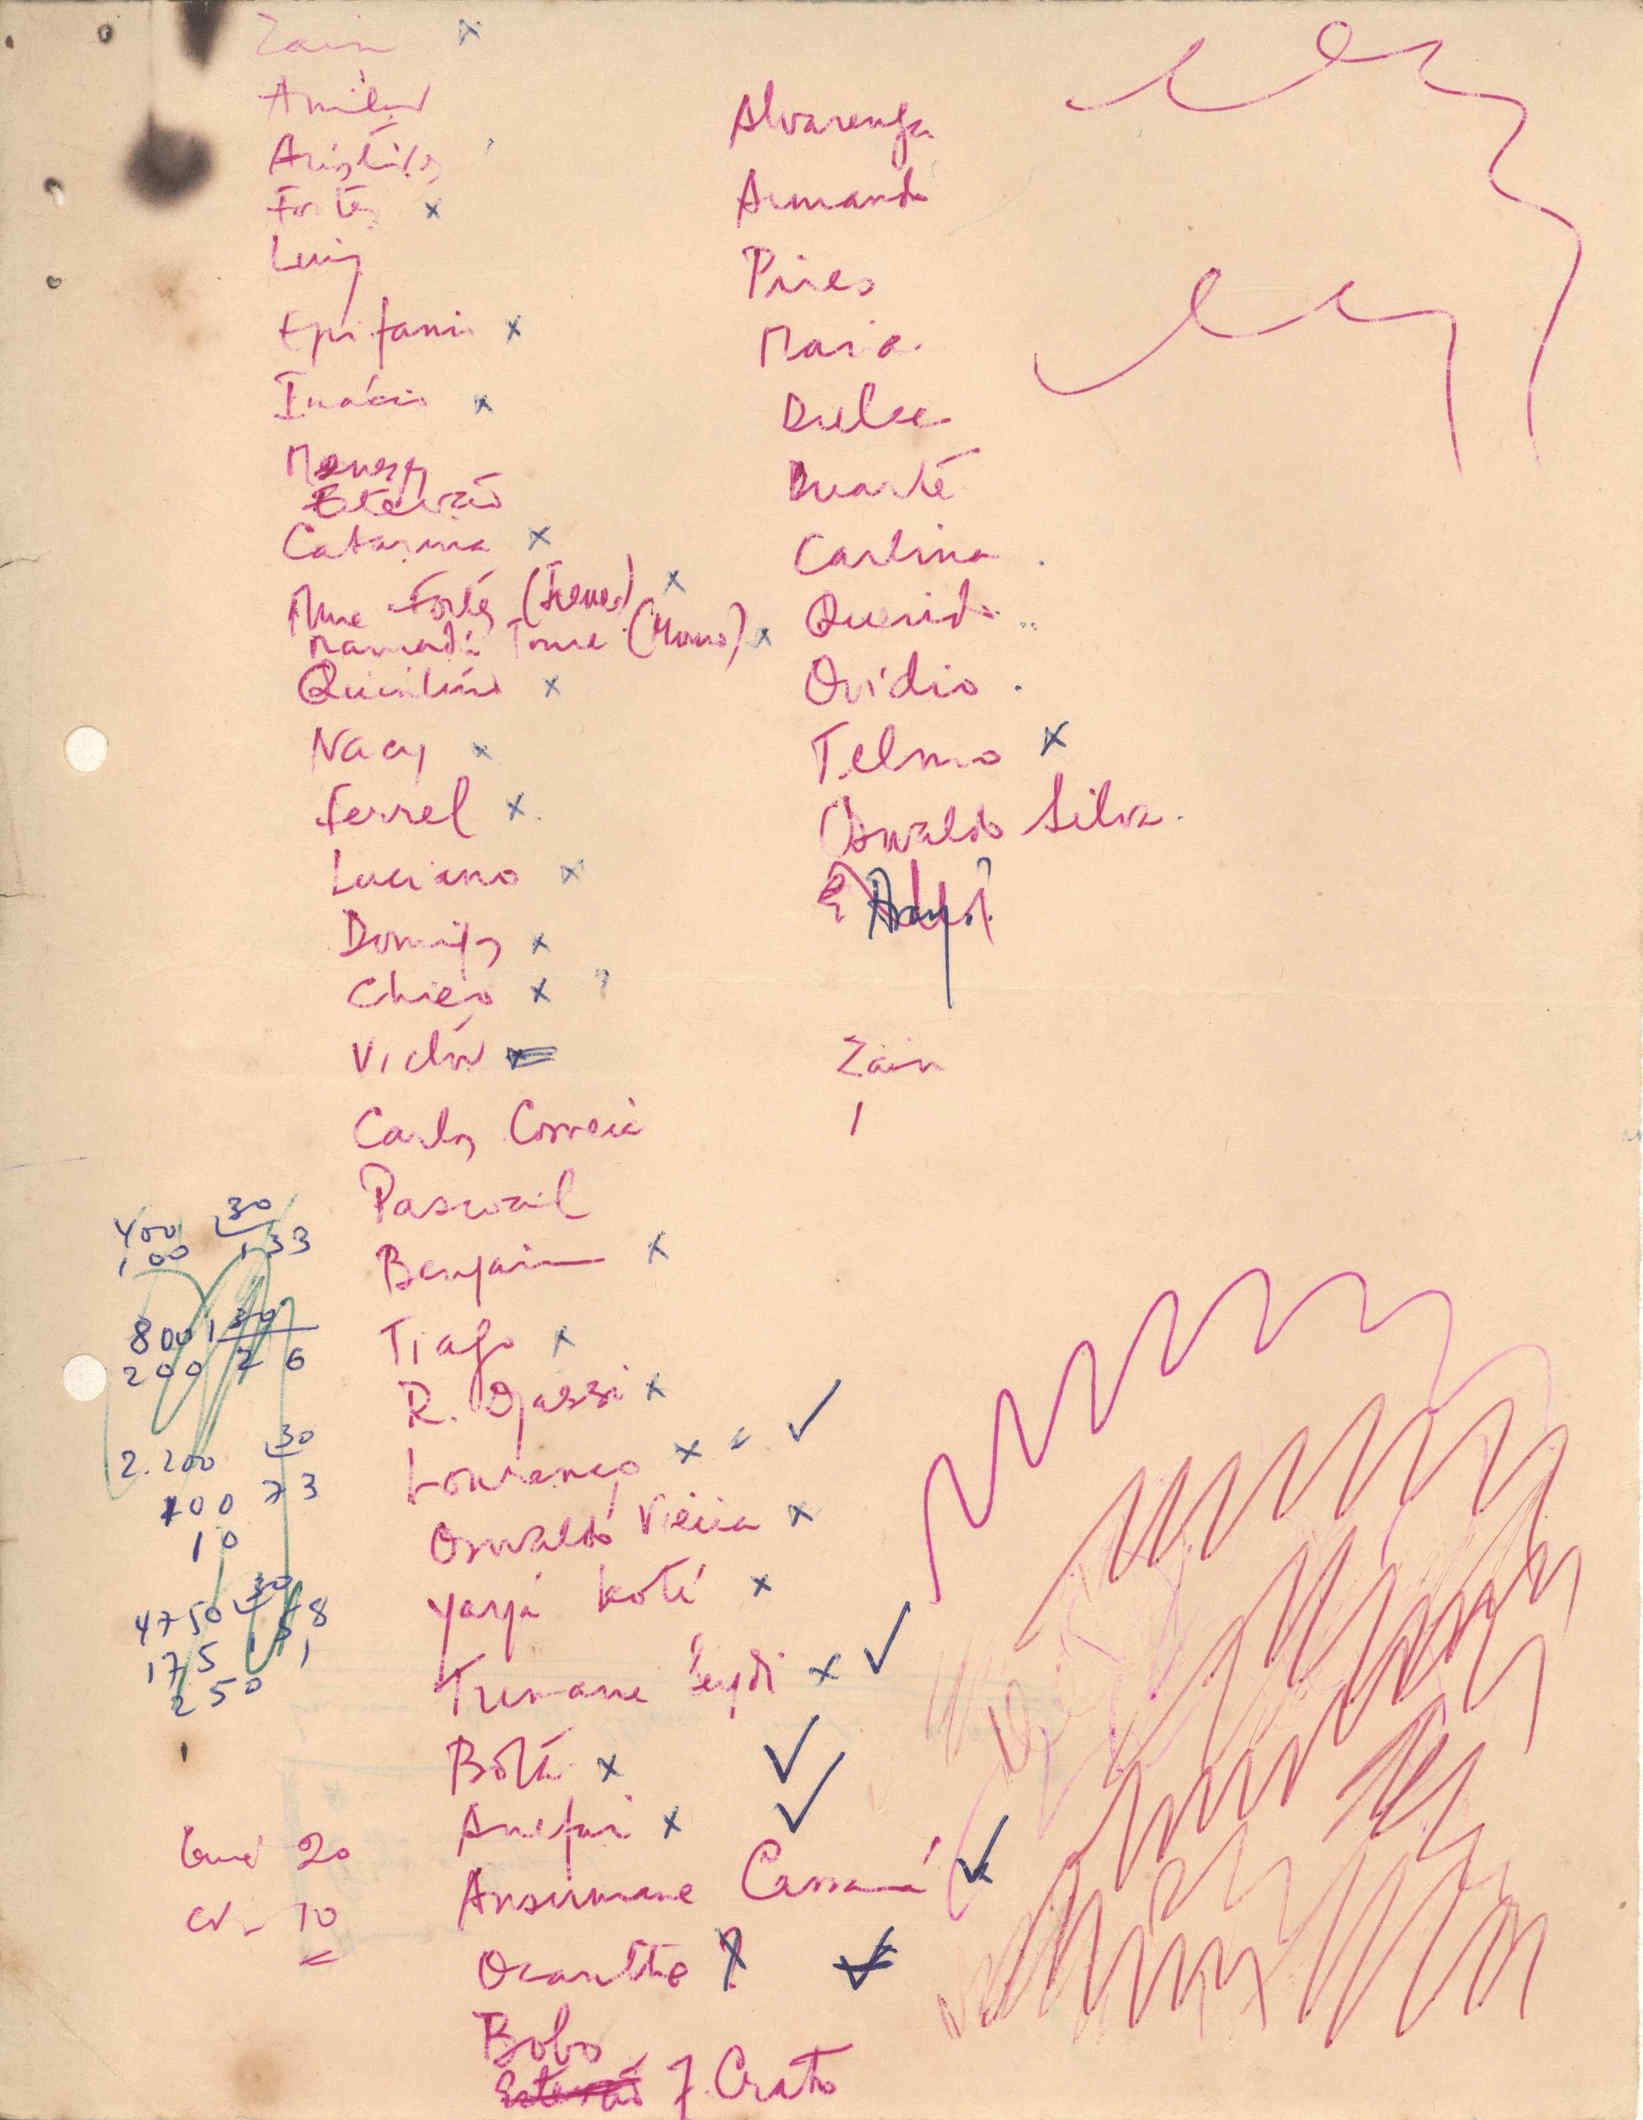 Zain x
Amílcar
Aristides
Fortes x
Luiz
Epifanio x
Inácio x
Estevão
Catarina x
Mme Fortes (Irene) x
Mamadú Toure (Momo) x
Quintino x
Nacy x
Ferrel x
Luciano x
Domingos x
Chico x ?
Victor
Carlos Correia
Pascoal
Benjamin x
Tiago x
R. Djassi x
Lourenço x = ✓
Osvaldo Vieira x
Yayá Koté x
Tumane Seydi x ✓
Bôta x ✓
Anefai x ✓
Ansumane Cassamá ✓
Ocantte x ✓
Bobo
Estevão J. Crato
Alvarenga
Armando
Pires
Maria
Dulce
Duarte
Carlina .
Querido ..
Ovídio .
Telmo x
Osvaldo Silva.
Zain
1
400 30
100 133
800 30
200 26
2.200 30
100 73
10
4750 30
175 158
250 1
Guiné 20
CV - 10